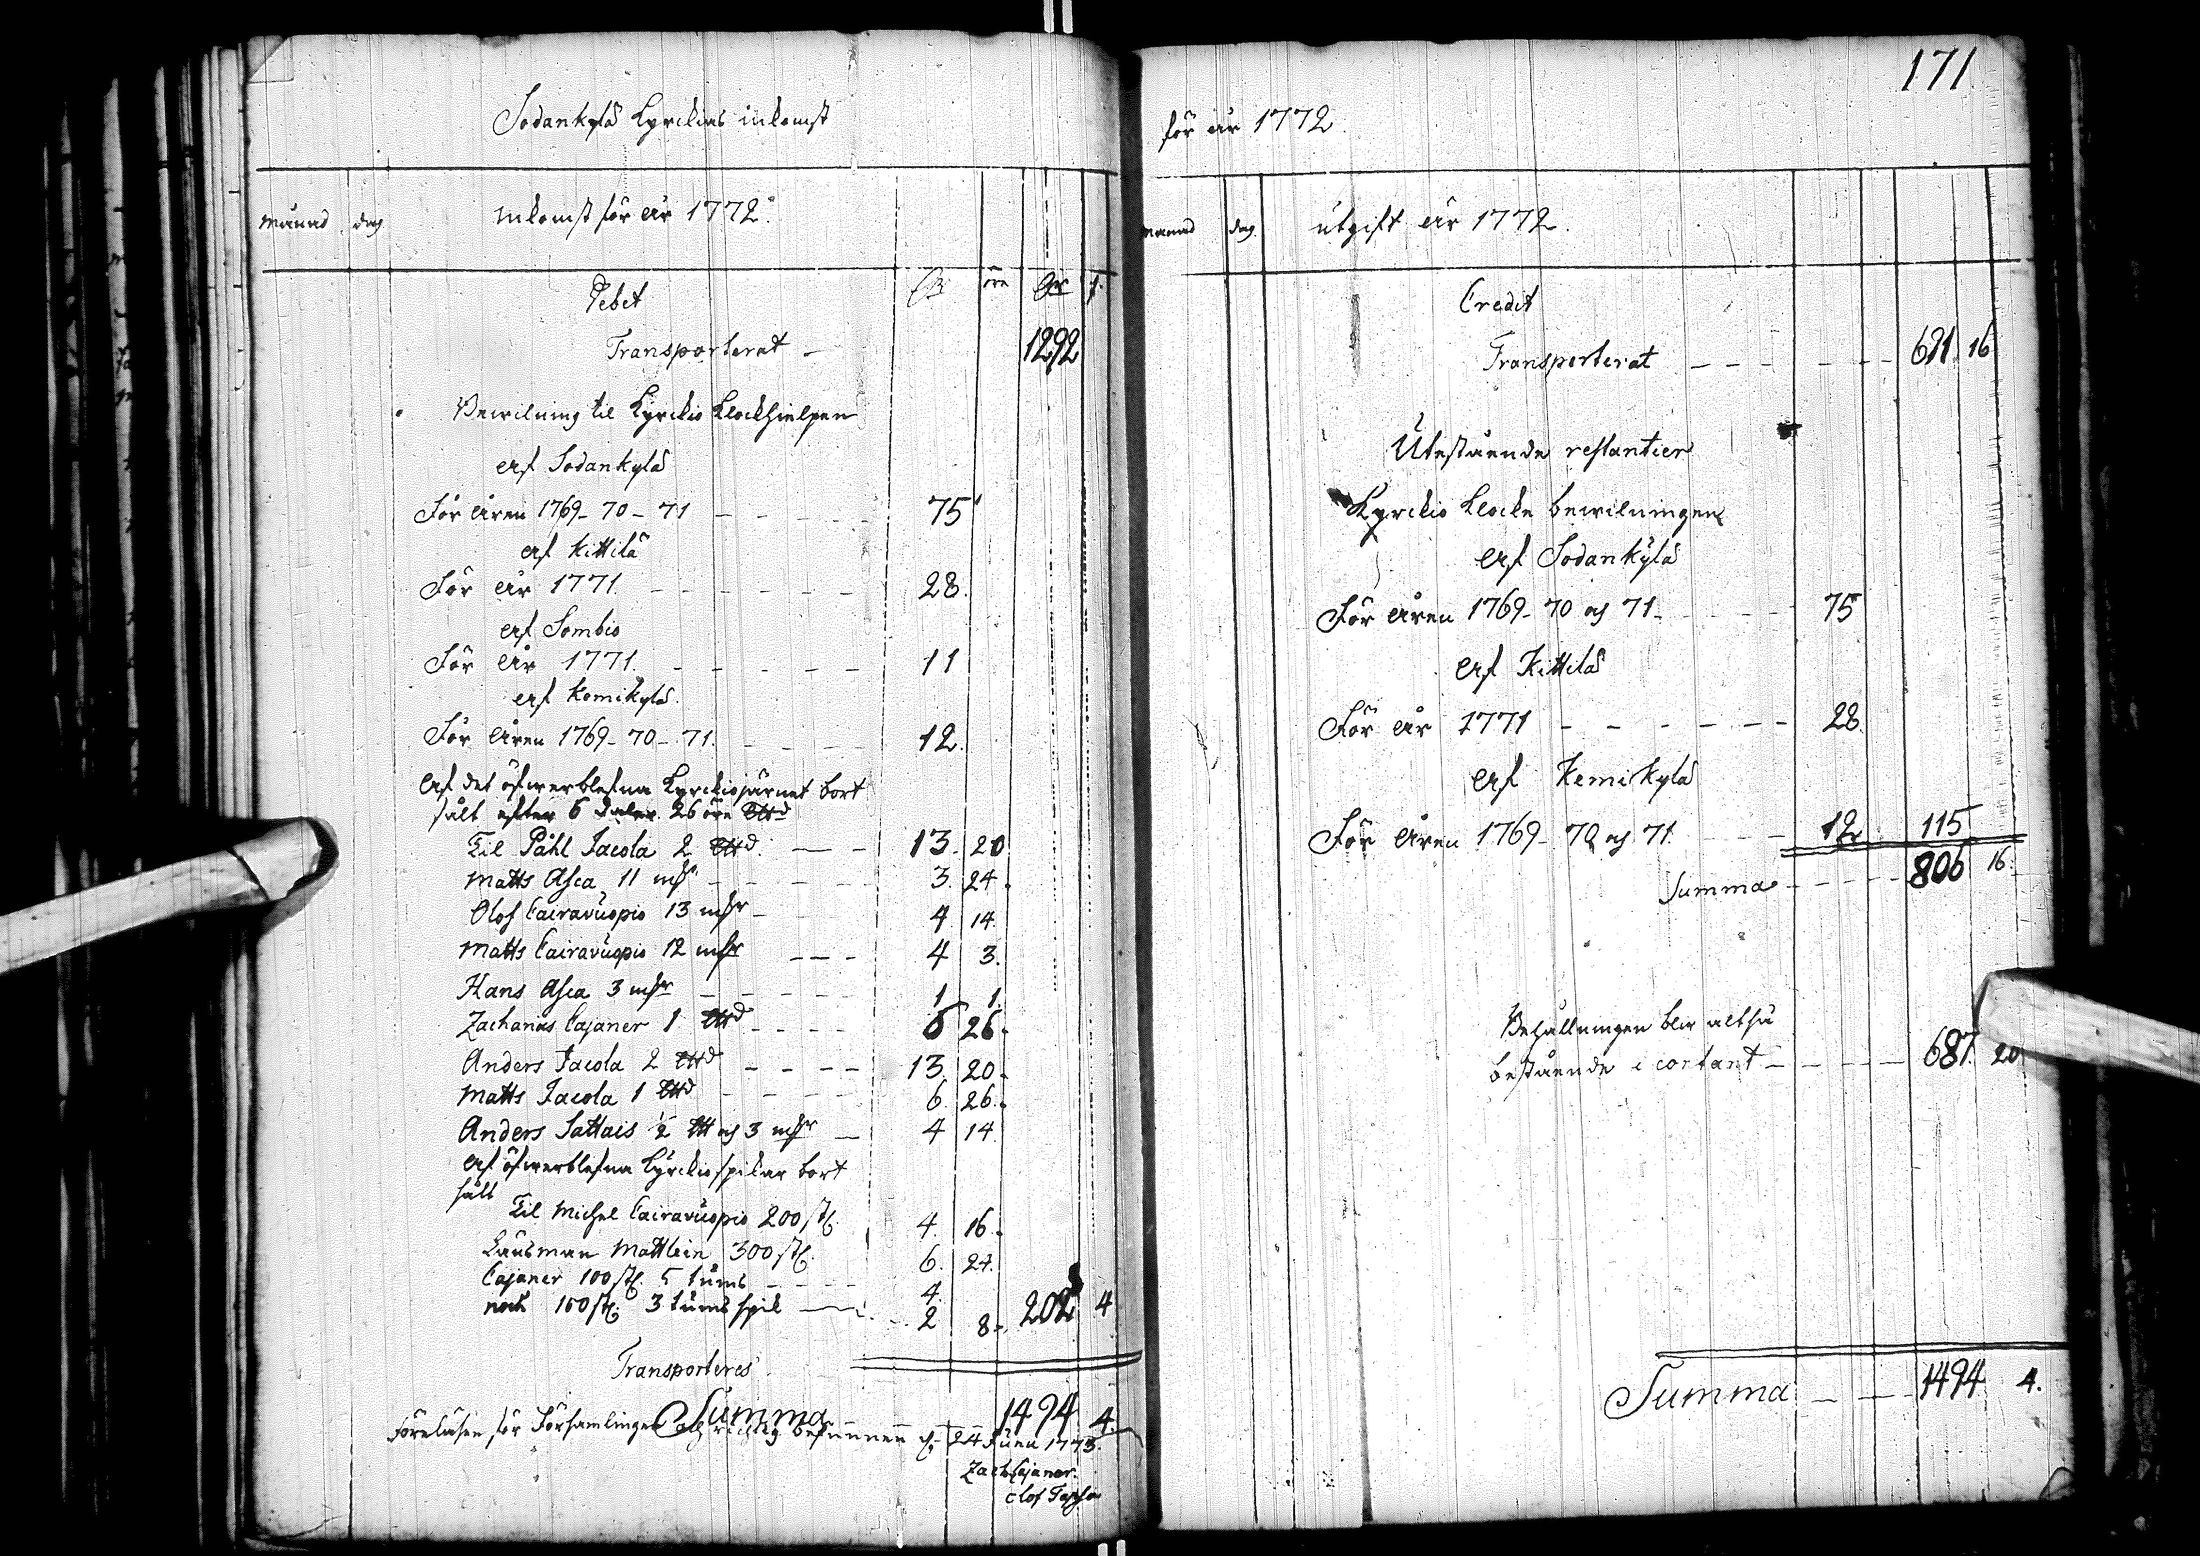 Sodankylä Kyrckios inkomst
månad dag inkomst för år 1772.
Debet öre
Transporterat 1292
Bewilning til Kyrckio Klockhielpen
af Sodankylä
För åren 1769-70-71 75
af Kittilä
För år 1771 28.
af Sombio
För år 1771. 11
af Kemikylä.
För åren 1769-70-71. 12.
af det öfwerblefna Kyrckiojärnet bort
sålt efter 6 daler 26 öre
Til Påhl Jacola 2 13. 20
Matts Asca 11 3. 24.
Olof Cairavuopio 13 4 14.
Matts Cairavuopio 12 4 3.
Hans Asca 3 1 1.
Zacharias Cajaner 1 6 26.
Anders Jacola 2 13. 20.
Matts Jacola 1 6. 26.
Anders Sattais ½ och 3 4 14.
af öfwerblefna Kyrckiospikar bort
sålt
Til Michel Cairavuopio 200 st. 4. 16.
Länsman Mattlein 300 st. 6. 24.
Cajaner 100 st. 5 tums 4.
noch 100 st. 3 tums spik 2 8. 202 4
Transporteres
Summa 1494 4.
Föreläsen för Församlingen och richtig befunnen d. 24 Juni 1773.
Zach Cajaner.
Olof
171
för år 1772.
månad dag utgift år 1772.
Credit
Transporterat 691 16
Utestående restantier
Kyrckio Klocke bewilningen
af Sodankylä
För åren 1769-70 och 71 75
af Kittilä
För år 1771 28
af Kemikylä
För åren 1769-70 och 71. 12 115
Summa 806 16.
Behållningen blir altså
bestående i contant 687. 20
Summa 1494 4.